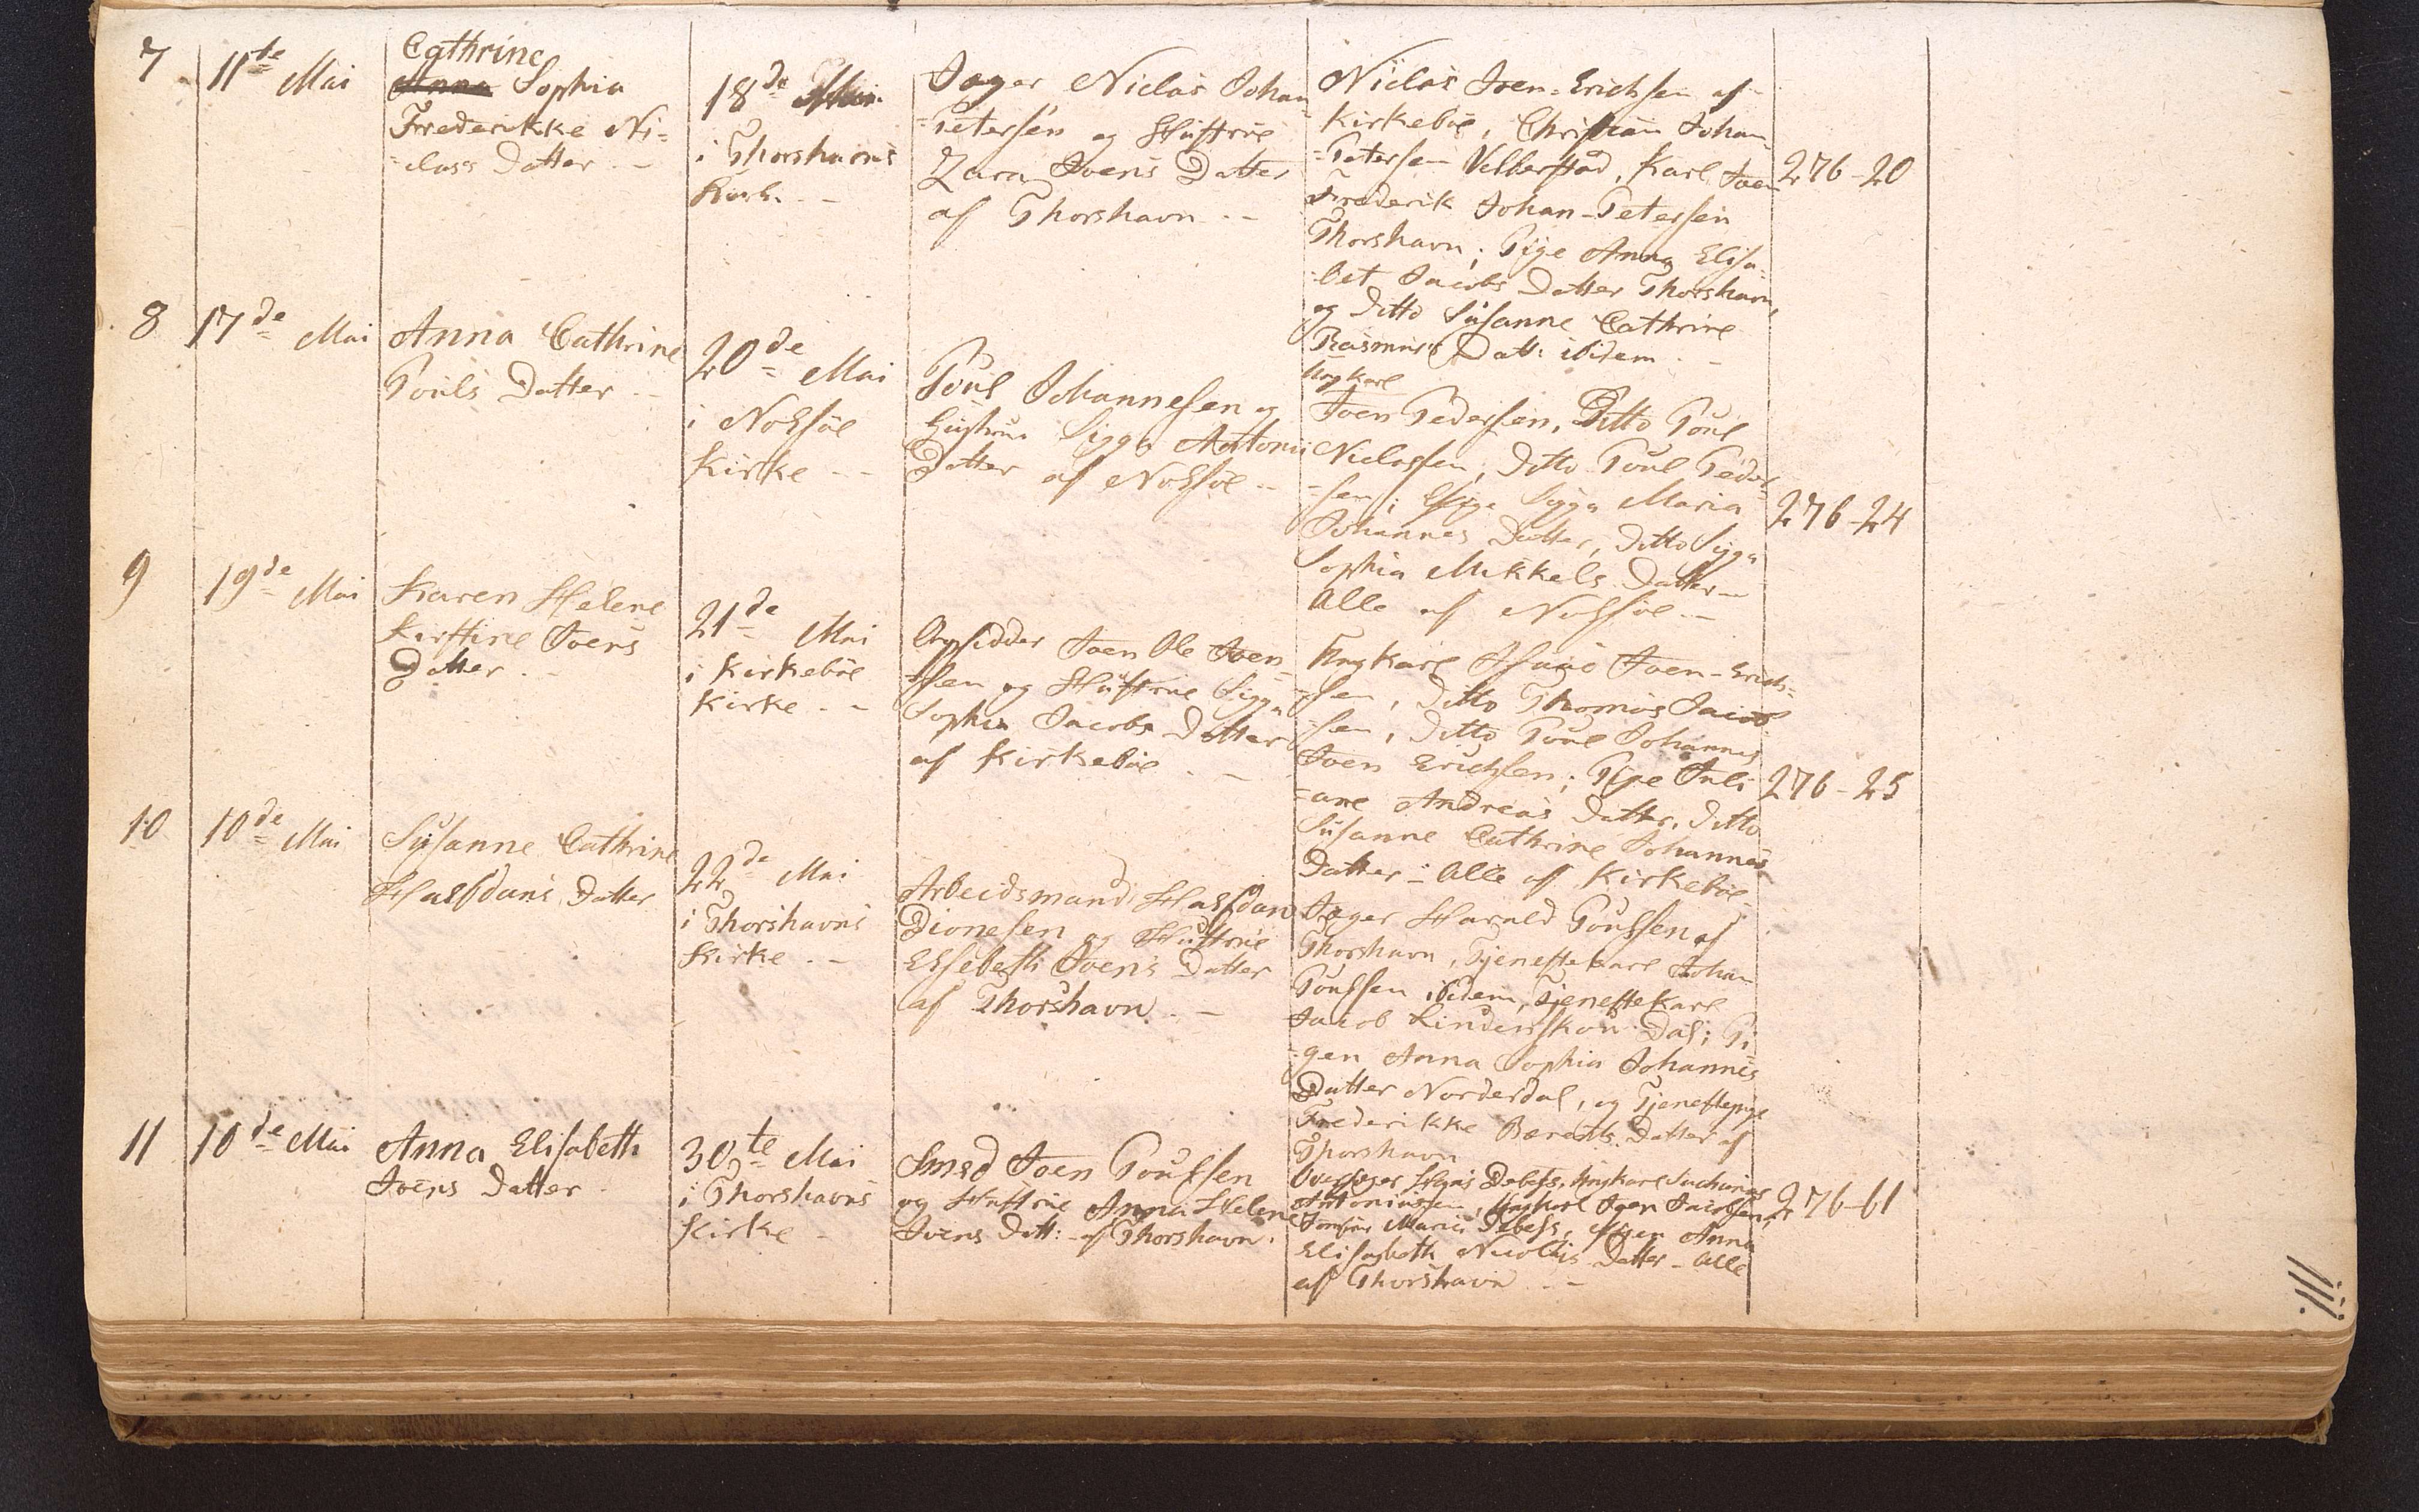 7
11te Mai
Cathrine
Anna Sophia
Frederikke Ni=
=class Datter. -
18de Mai
i Thorshavns
Kirk. -
Jæger Niclas Johan
=Petersen og Hustrue
Zara Joens Datter
af Thorshavn. -
Niclas Joen-Erichsen af
Kirkeböe, Christian Johan
=Petersen Velberstad, Karl Joen
Frederik Johan-Petersen
Thorshavn; Pige Anna Elisa=
=bet Jacobs Datter Thorshavn,
og Ditto Susanne Cathrine
Rasmus Datt: ibidem. -
276-20
8
17de Mai
Anna Cathrine
Pouls Datter. -
20de Mai
i Nolsöe
Kirke. -
Poul Johannesen og
Hustrue Sigga Antonii
Datter af Nolsöe. -
Ungkarl
Joen Pedersen, Ditto Poul
Niclassen, Ditto Poul Peder=
=sen; Pige Sigga Maria
Johannes Datter, Ditto Sigga
Sophia Mikkels Datter -
Alle af Nolsöe. -
276-24
9
19de Mai
Karen Helene
Kirstine Joens
Datter. -
21de Mai
i Kirkeböe
Kirke. -
Opsidder Joen Ole Joen=
=sen og Hustrue Sigga
Sophia Jacobs Datter
af Kirkeböe. -
Ungkarl Isaac Joen-Erich=
=sen, Ditto Thomas Jacob
=sen, Ditto Poul Johannes
Joen Erichsen; Pige Juli
=ane Andreas Datter, Ditto
Susanne Cathrine Johannes
Datter - Alle af Kirkeböe -
276-25
10
10de Mai
Susanne Cathrine
Halfdans Datter
22de Mai
i Thorshavns
Kirke. -
Arbeidsmand Halfdan
Dionesen og Hustrue
Elsebeth Joens Datter
af Thorshavn. -
Jæger Harald Poulsen af
Thorshavn, Tjenestekarl Johan
Poulsen ibidem, Tjenestekarl
Jacob Dal; Pi
=gen Anna Sophia Johannes
Datter Norderdal, og Tjenestepige
Frederikke Barents Datter af
Thorshavn
11
10de Mai
Anna Elisabeth
Joens Datter.
30te Mai
i Thorshavns
Kirke -
Smed Joen Poulsen
og Hustrue Anna Helene
Joens Datt: af Thorshavn.
Overjæger Hans Debess, Ungkarl Sacharias
Antoniussen, Ungkarl Joen Jacobsen,
Jomfru Maria Debess, Pigen Anna
Elisabeth Nicolais Datter - Alle
af Thorshavn. -
276-61
111.